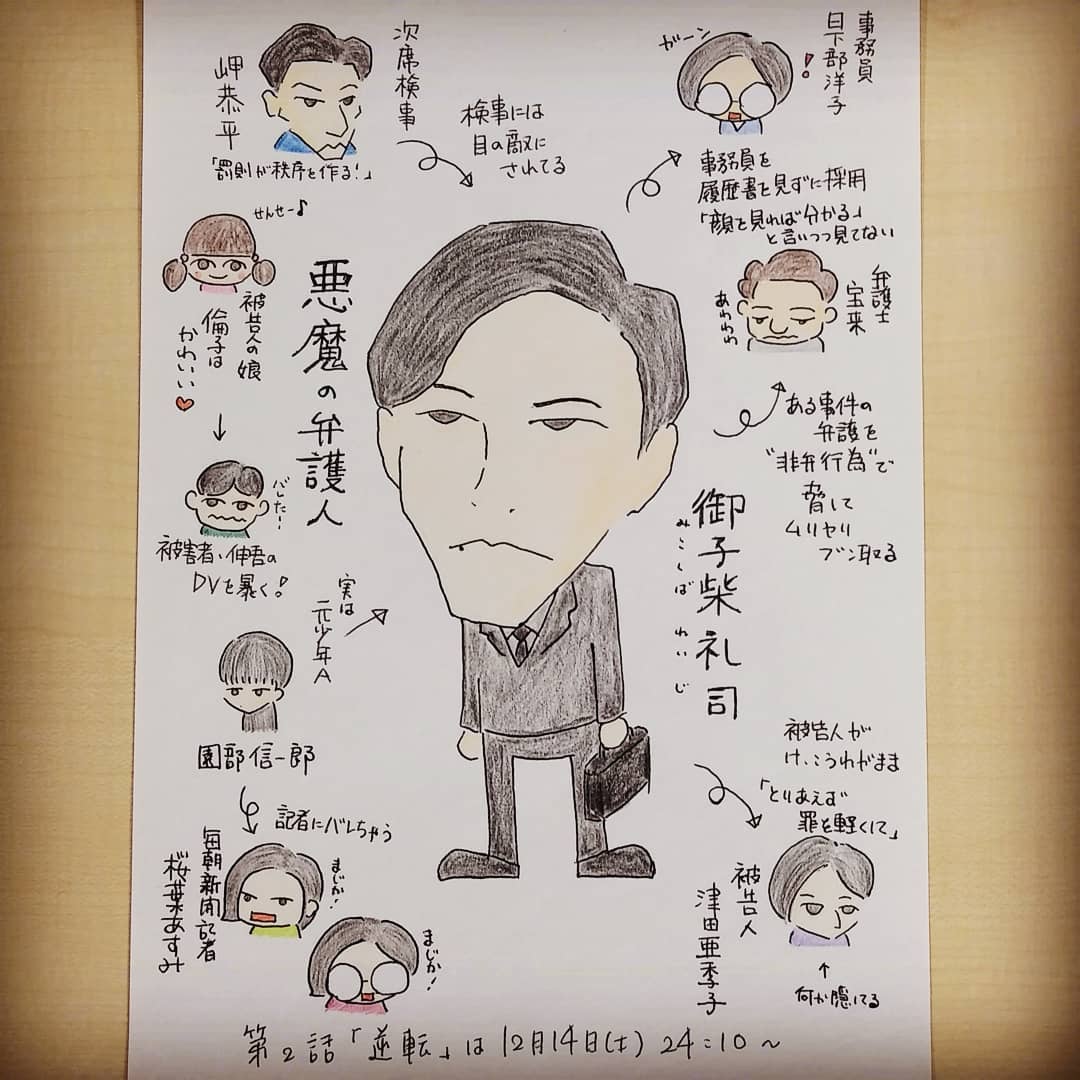 次席検事
岬恭平
「罰則が秩序を作る!」
検事には
目の敵に
されてる
事務員
日下部洋子
ガーン
事務員を
履歴書を見ずに採用
「顔を見れば分かる」
と言いつつ見てない
せんせー♪
被告人の娘
倫子は
かわいい♥
悪魔の弁護人
御子柴礼司
みこしば れいじ
弁護士
宝来
あわわわ
ある事件の
弁護を
"非弁行為"で
脅して
ムリヤリ
ブン取る
バレたー
被害者・伸吾の
DVを暴く!
実は
元少年A
園部信一郎
記者にバレちゃう
毎朝新聞記者
桜葉あすみ
まじか!
まじか!
被告人が
けっこうわがまま
「とりあえず
罪を軽くして」
被告人
津田亜季子
↑
何か隠してる
第2話「逆転」は12月14日(土)24:10～